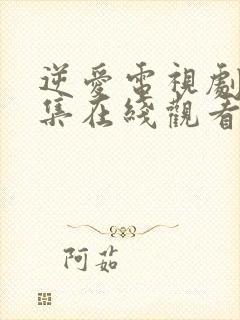 逆愛電視劇
集在綫觀看
阿茹